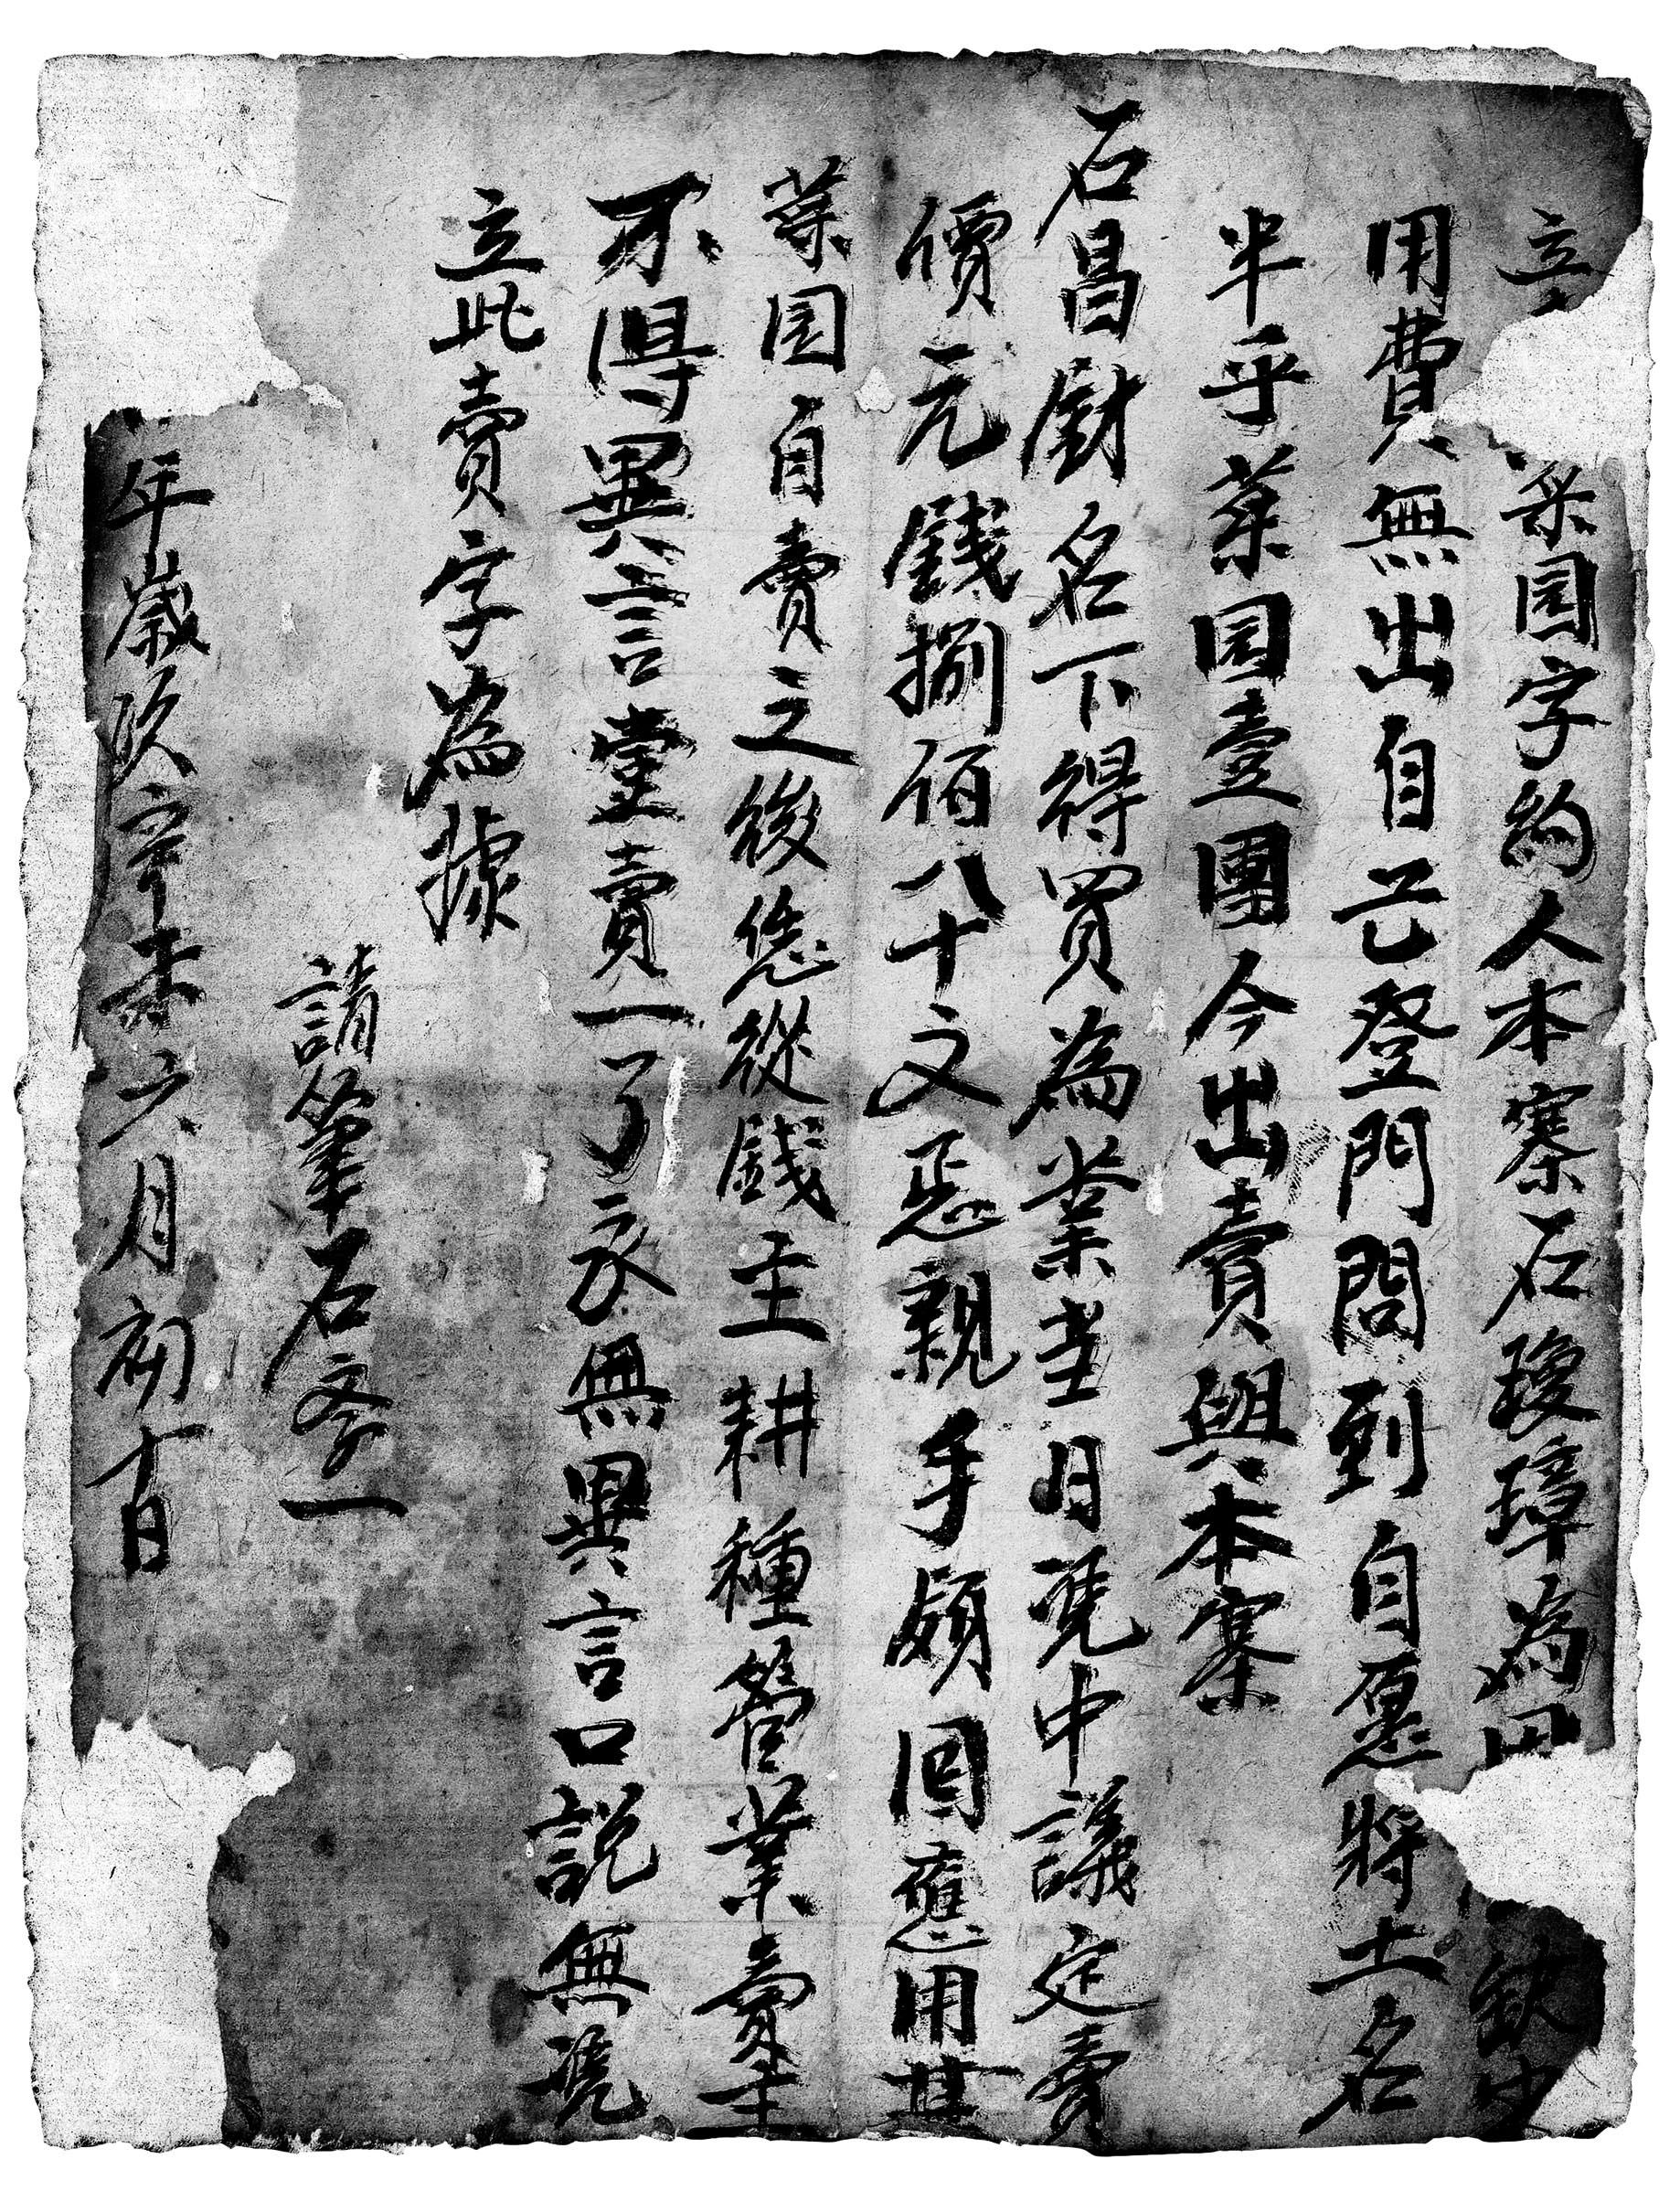 立菜园字約人本寨石瓊璋為因缺少
用費無出自己登門問到自愿將土名
半乎菜园壹團今出賣與本寨
石昌財名下得買為業当日凭中議定賣
價元錢捌佰八十文恁親手領回應用其
菜园自賣之後恁從錢主耕種管業賣主
不得異言壹賣一了永無異言口説無凭
立此賣字為據
請筆石
年歲次辛未六月初十日